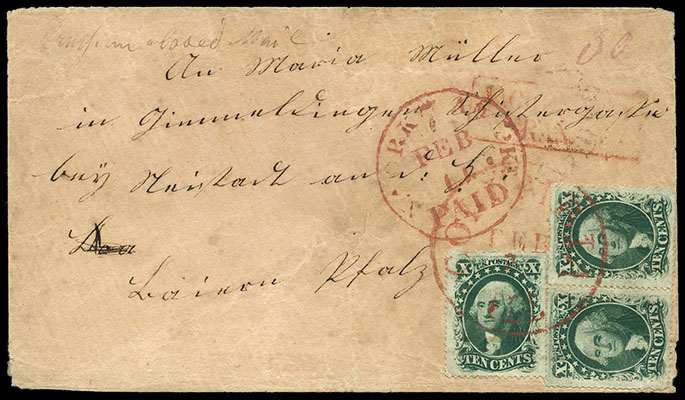 Prussian closed Mail 30
An Maria Müller
in Gimmeldingen
bey Neistadt an d. H.
Baiern Pfalz
FEB
PAID
FEB
X U.S. POSTAGE X
TEN CENTS
X TEN CENTS
X TEN CENTS